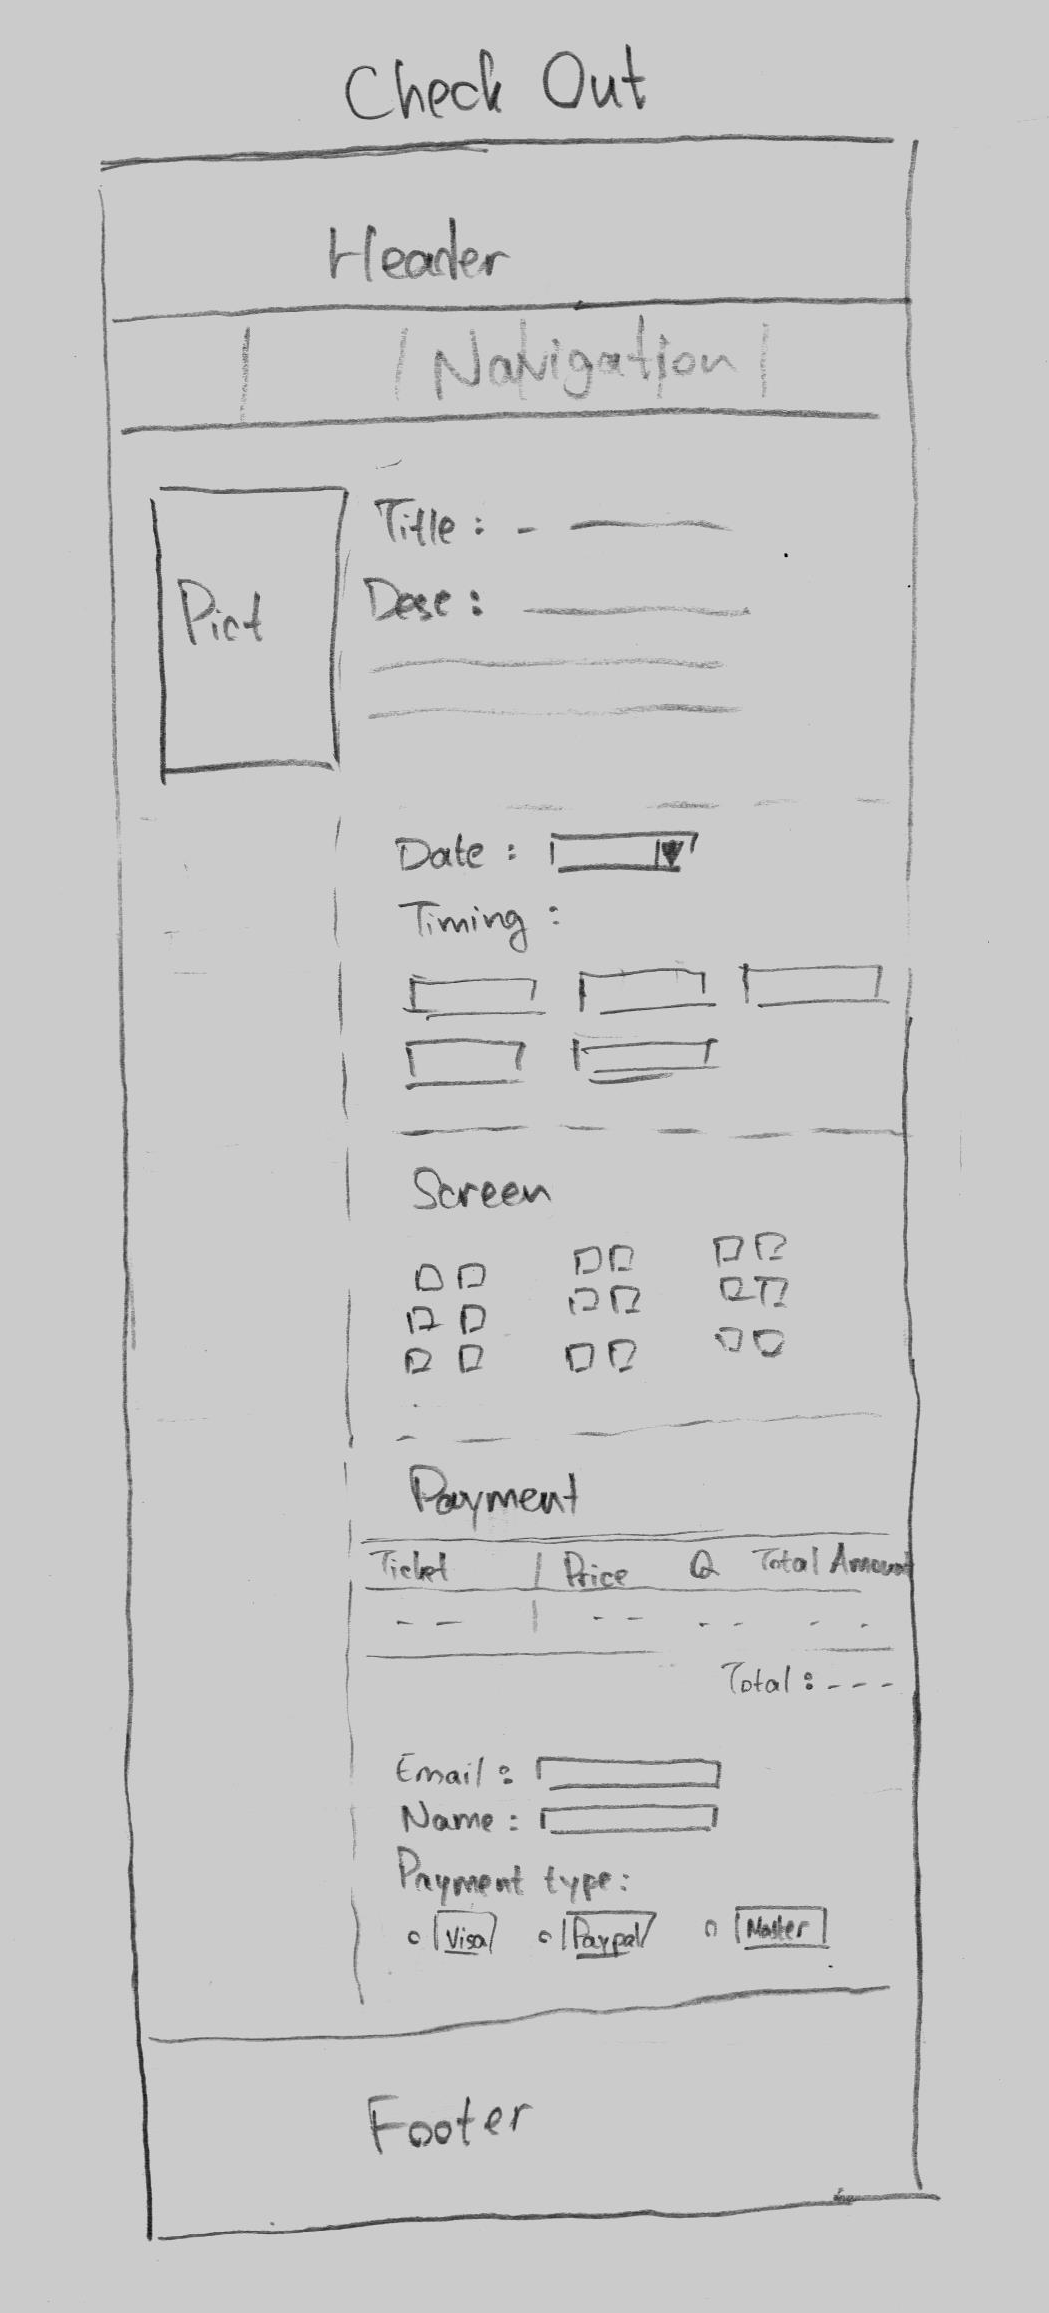 Check Out
Header
Navigation
Pict
Title :
Desc :
Date :
Timing :
Screen
Payment
Ticket | Price Q Total Amount
Total :
Email :
Name :
Payment type:
Visa Paypal Master
Footer